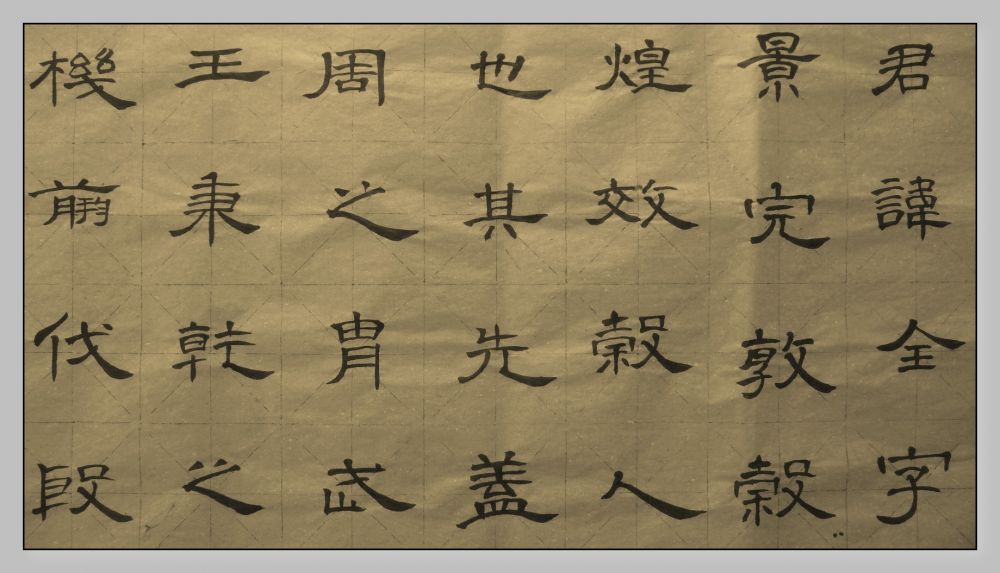 君諱全字
景完敦穀
煌效穀人
也其先蓋
周之胄武
王秉乾之
機翦伐殷